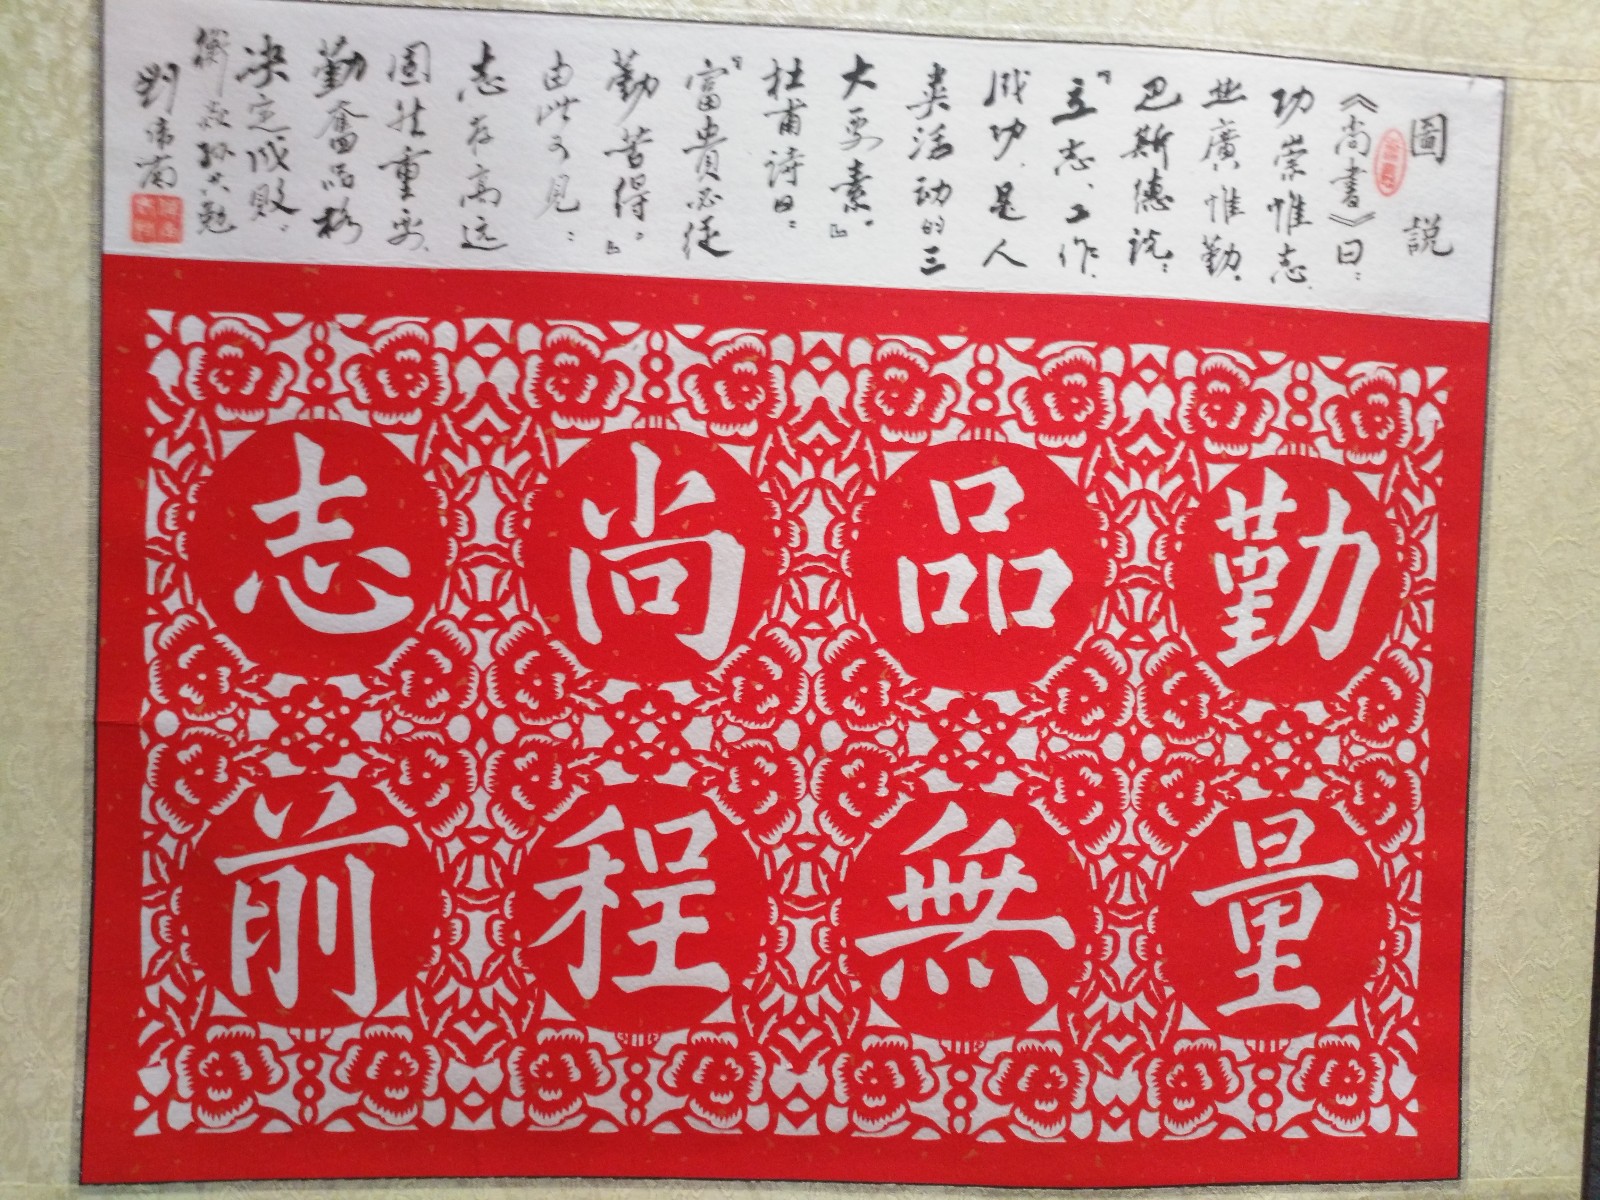 圖説
《尚書》曰：
功崇惟志、
业廣惟勤。
巴斯德説：
『立志、工作、
成功，是人
类活动的三
大要素。』
杜甫诗曰：
『富貴必從
勤苦得。』
由此可见：
志存高远
固然重要，
勤奮品格
决定成败。
孙共勉
劉
志尚品勤
前程無量